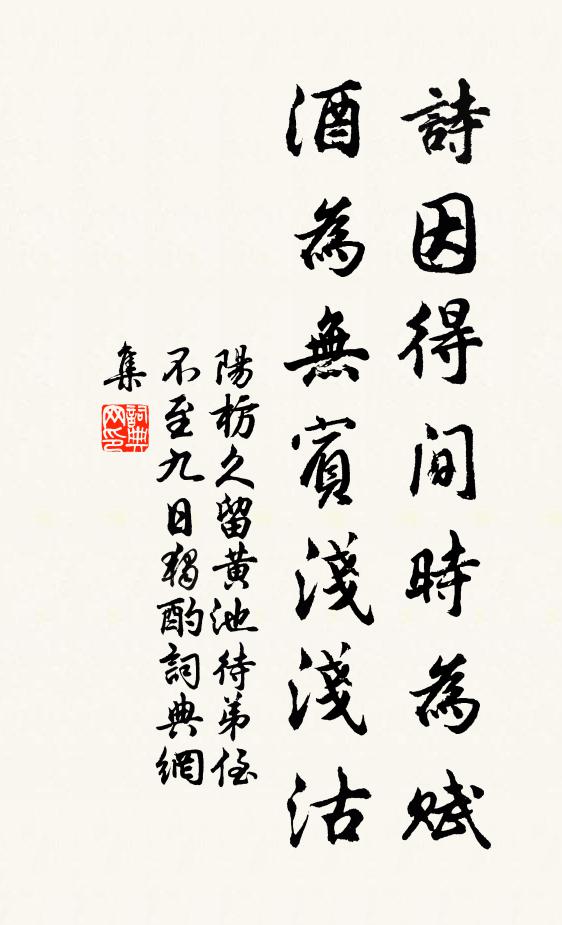 詩因得間時為賦
酒為無賓淺淺沽
陽枋久留黃池待弟侄
不至九日獨酌詞典網
集
詞典
网印